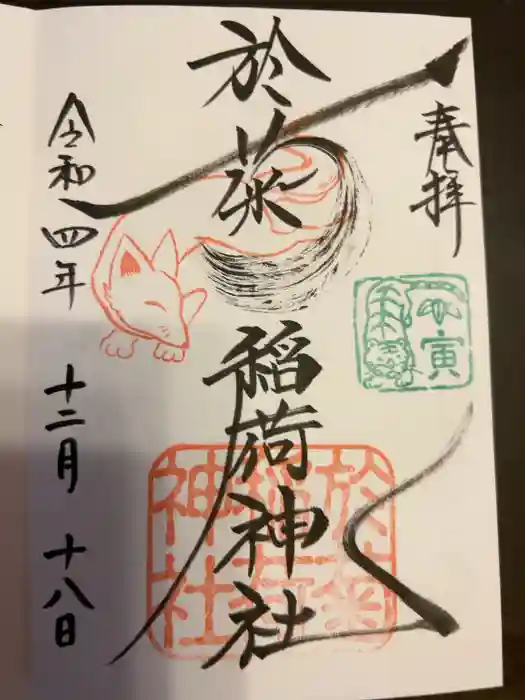 奉拝
於菊稲荷神社
令和四年 十二月 十八日
寅
於菊
稲荷
神社